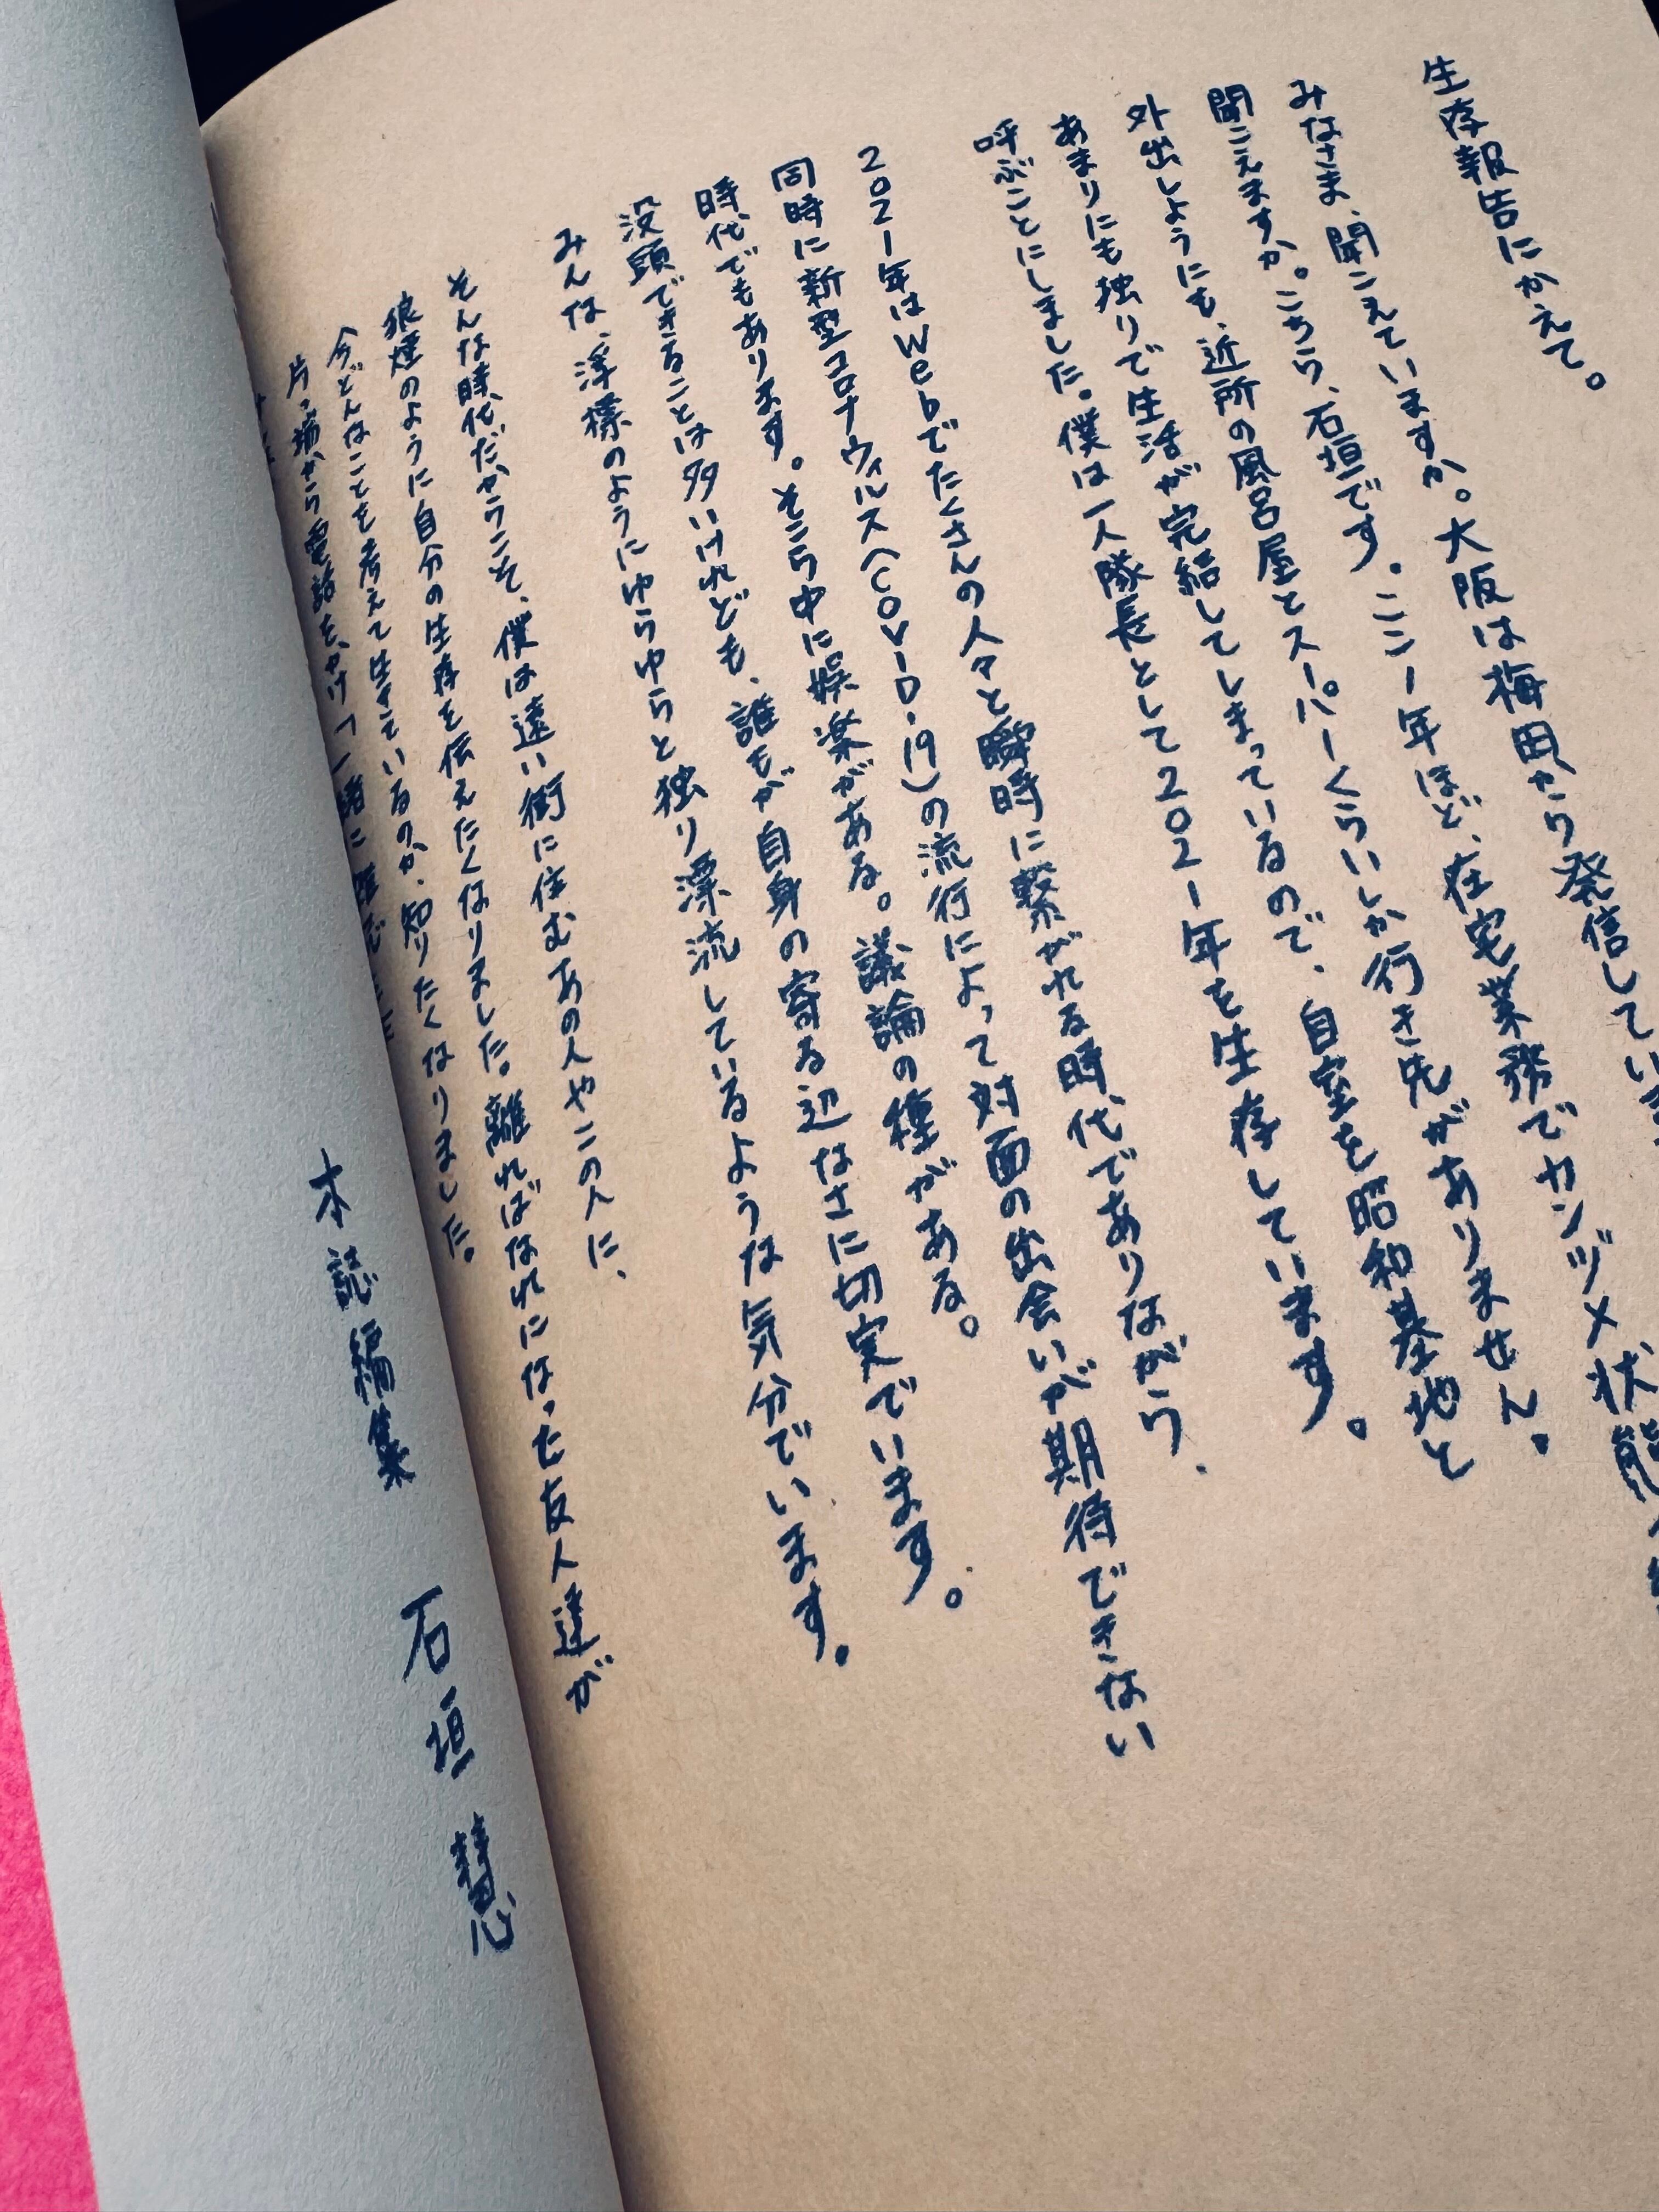 生存報告にかえて。
みなさま、聞こえていますか。大阪は梅田から発信していま
聞こえますか。こちら、石垣です。ここ1年ほど、在宅業務でカンヅメ状態
外出しようにも、近所の風呂屋とスーパーくらいしか行き先がありません。
あまりにも独りで生活が完結してしまっているので、自室を昭和基地と
呼ぶことにしました。僕は一人隊長として2021年を生存しています。
2021年はWebでたくさんの人々と瞬時に繋がれる時代でありながら、
同時に新型コロナウィルス(COVID-19)の流行によって対面の出会いが期待できない
時代でもあります。そこら中に娯楽がある。議論の種がある。
没頭できることは多いけれども、誰もが自身の寄る辺なさに切実でいます。
みんな、浮標のようにゆらゆらと独り漂流しているような気分でいます。
そんな時代だからこそ、僕は遠い街に住むあの人やこの人に、
狼煙のように自分の生存を伝えたくなりました。離ればなれになった友人達が
今どんなことを考えて生きているのか、知りたくなりました。
片っ端から電話をかけ「一緒に
本誌編集 石垣慧